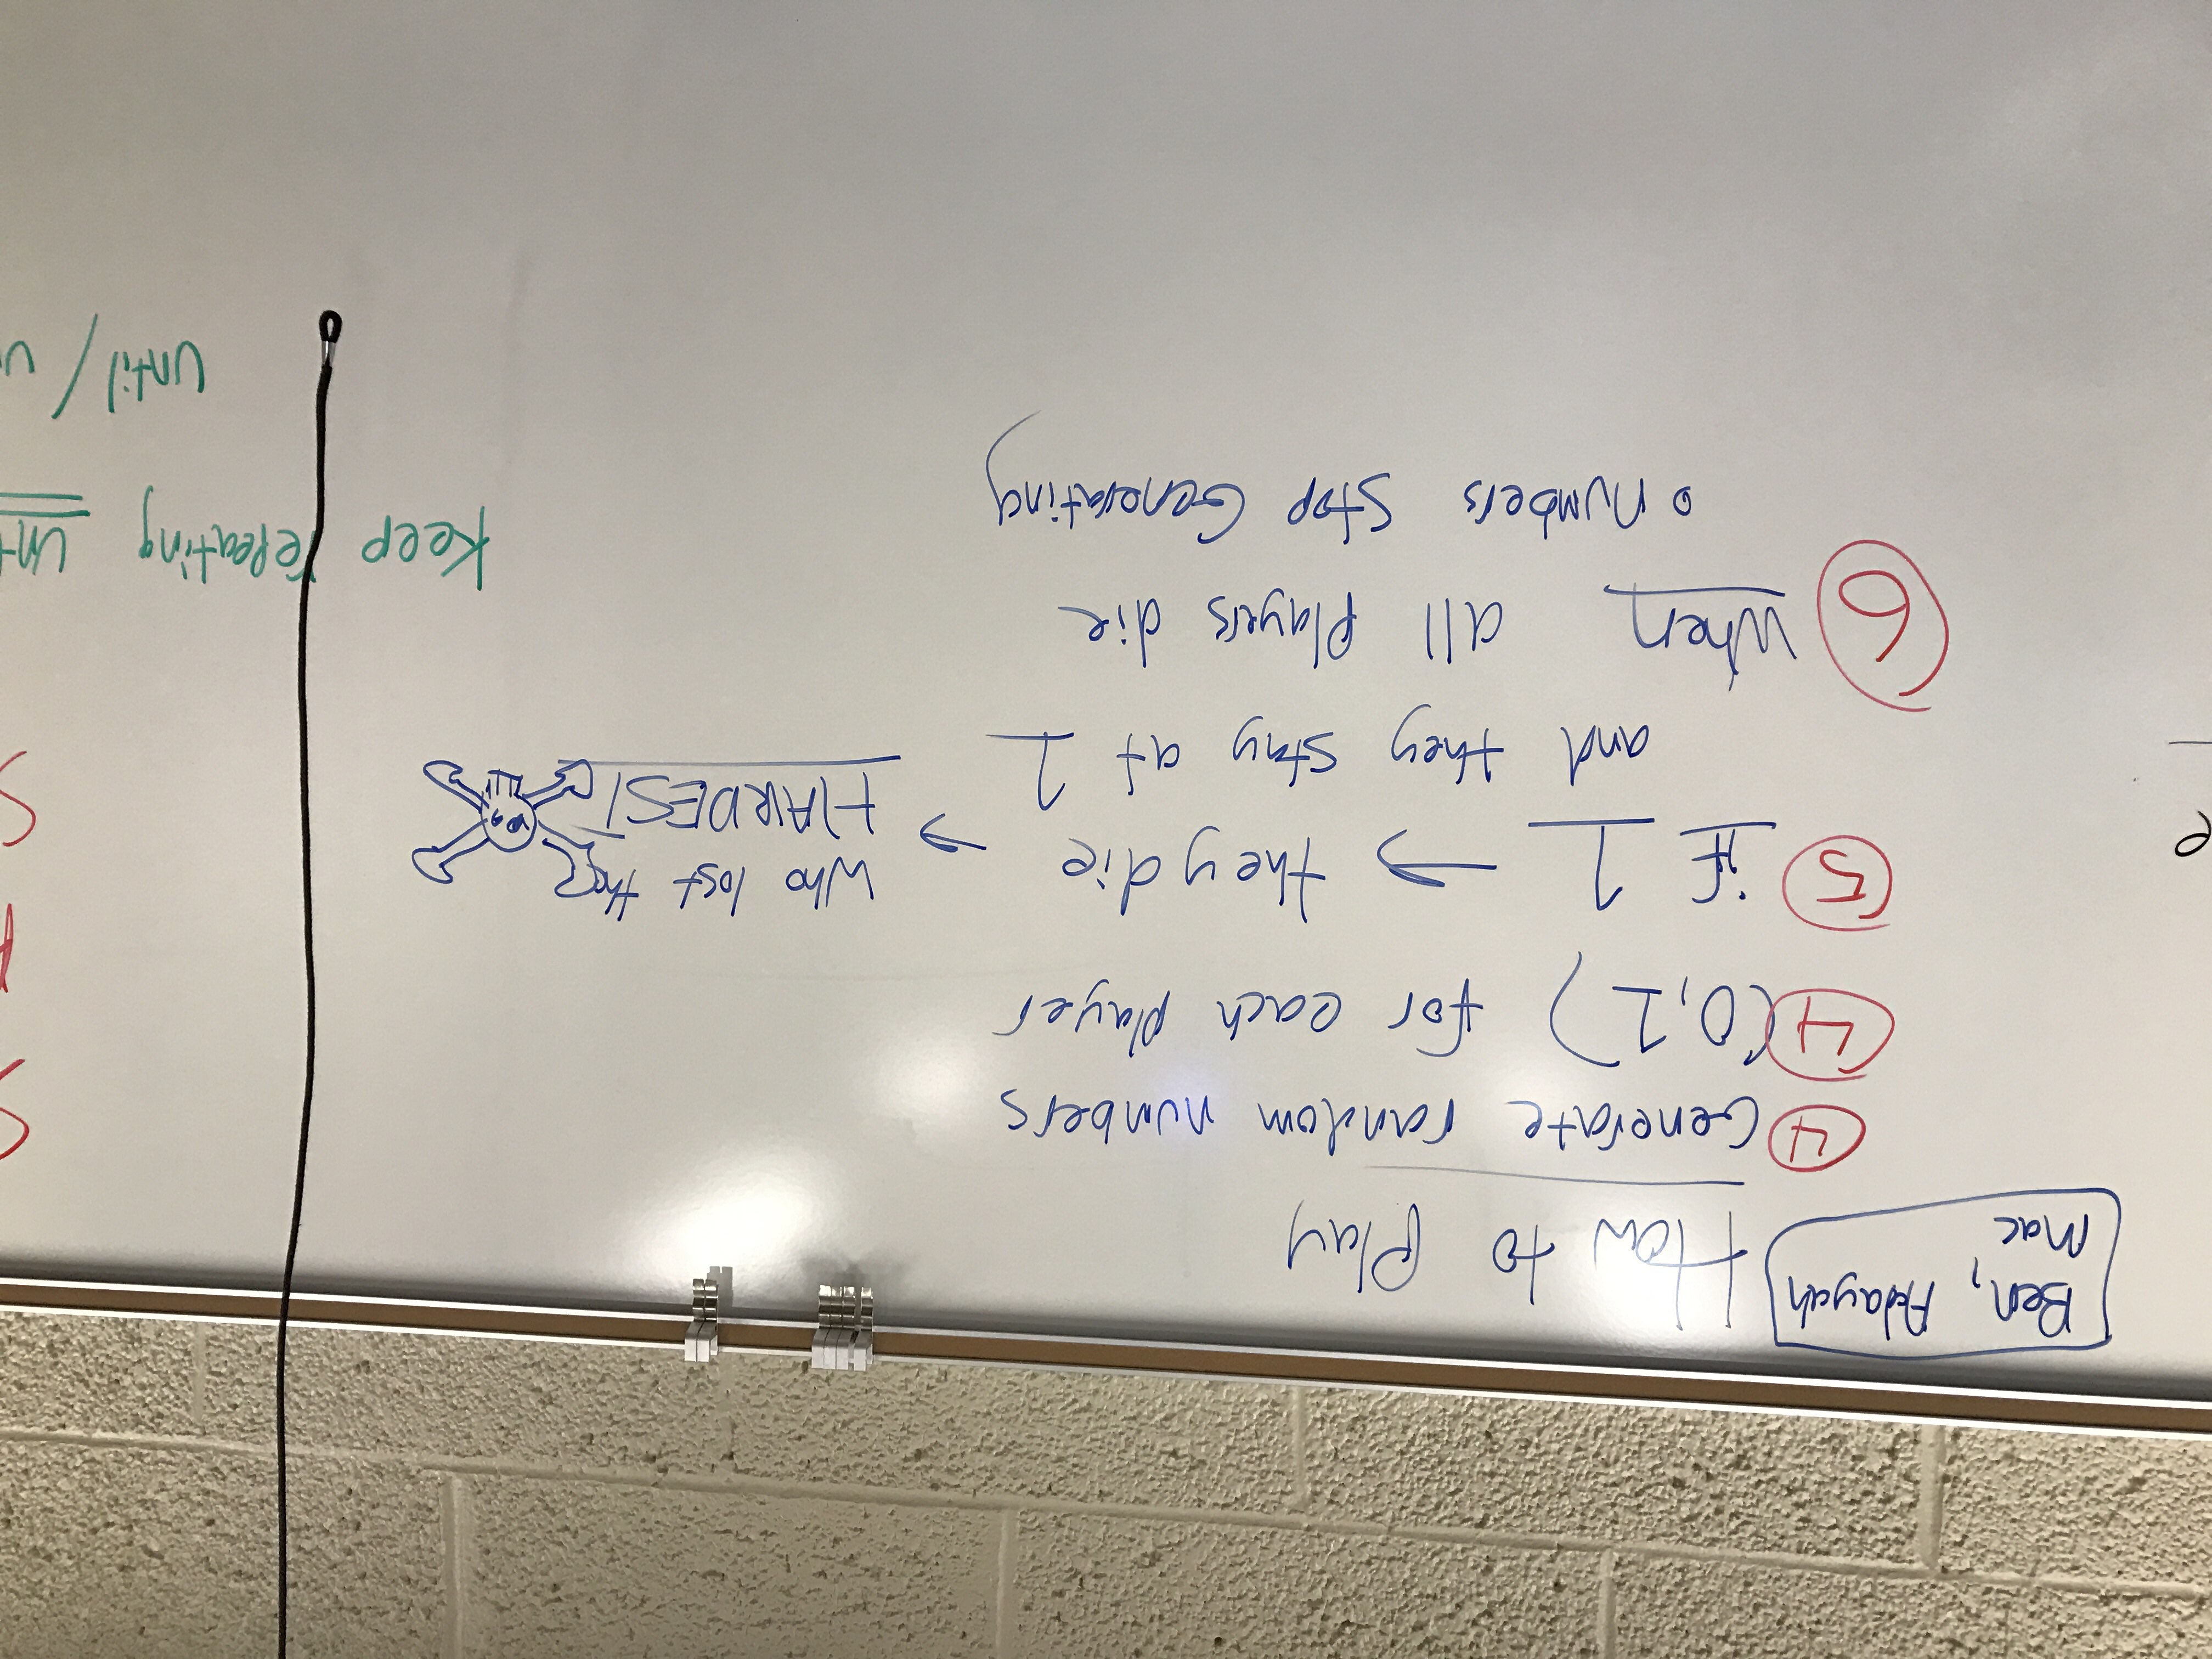 Ben, Adayah
Mac
How to Play
4 Generate random numbers
4 (0,1) for each player
5 if 1 → they die → Who lost the
HARDEST
and they stay at 1
6 When all players die
• numbers stop Generating
Keep repeating
until /